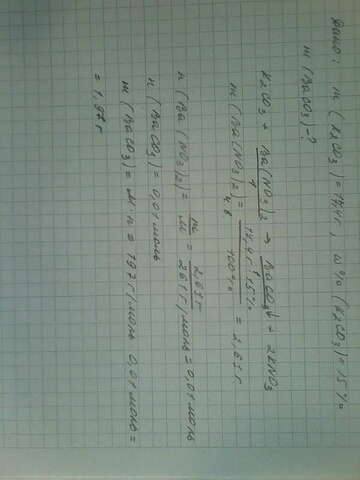 Дано: m (K2CO3) = 17,4 г, ω% (K2CO3) = 15%
m (BaCO3) - ?
K2CO3 + Ba(NO3)2 → BaCO3↓ + 2KNO3
m (Ba(NO3)2 = 17,4 г · 15% / 100% = 2,61 г
ч.в.
n (Ba(NO3)2) = m / M = 2,61 г / 261 г/моль = 0,01 моль
n (BaCO3) = 0,01 моль
m (BaCO3) = M · n = 197 г/моль · 0,01 моль =
= 1,97 г